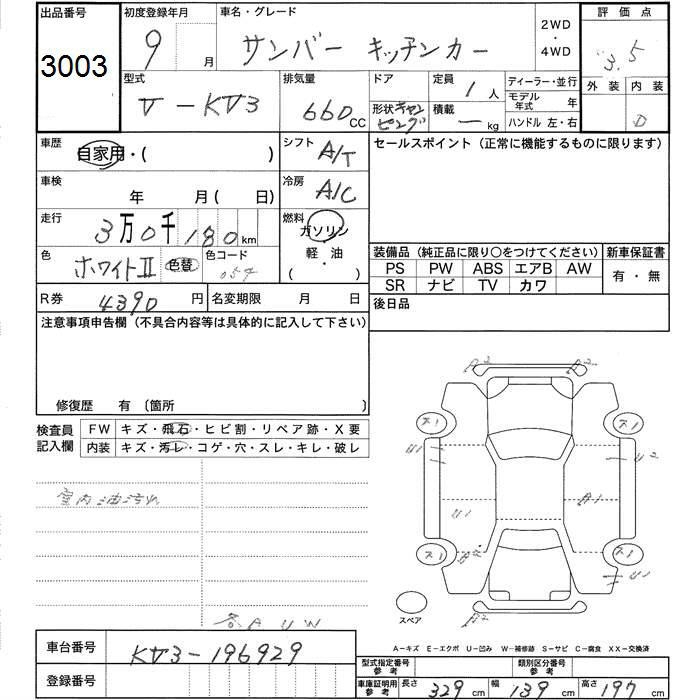 出品番号 初度登録年月 車名・グレード 2WD ・ 4WD 評価点
3003 9月 サンバー キッチンカー 3.5
型式 排気量 ドア 定員 1人 ディーラー・並行 外装 内装
V-KV3 660CC 形状 キャンピング 積載 ー kg モデル年式 年 D
ハンドル 左・右
車歴 自家用・( ) シフト A/T セールスポイント(正常に機能するものに限ります)
車検 年 月( 日) 冷房 A/C
走行 3万0千180km 燃料 ガソリン・軽油( )
色 ホワイトII 色替 色コード 054
装備品(純正品に限り○をつけてください) 新車保証書
PS PW ABS エアB AW 有・無
SR ナビ TV カワ
R券 4390円 名変期限 月 日 後日品
注意事項申告欄(不具合内容等は具体的に記入して下さい)
修復歴 有 〔箇所 〕
検査員記入欄 FW キズ・飛石・ヒビ割・リペア跡・X要
内装 キズ・汚レ・コゲ・穴・スレ・キレ・破レ
室内油汚れ
各AUW
A2 A2
ス1 ス1
U1 U2
U1 A1
ス1 B2 ス1
U1
A2 A2
スペア
A-キズ E-エクボ U-凹み W-補修跡 S-サビ C-腐食 XX-交換済
車台番号 KV3-196929
型式指定番号 参考 類別区分番号 参考
登録番号
車庫証明用 参考 長さ 329cm 幅 139cm 高さ 197cm